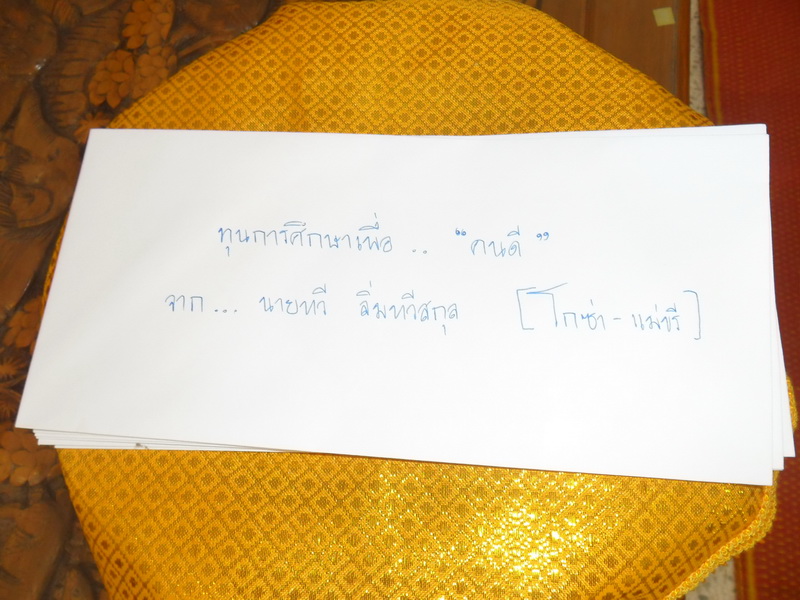 ทุนการศึกษาเพื่อ .. "คนดี"
จาก ... นายทวี ลิ่มทวีสกุล [โกซ่า - แม่ขรี]